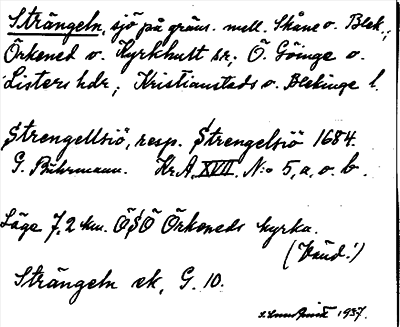 Strängeln, sjö på gräns. mell. Skåne o. Blek.;
Örkened o. Kyrkhult sr; Ö. Göinge o.
Listers hdr; Kristianstads o. Blekinge l.
Strengellsiö, resp. Strengelsiö 1684.
G. Buhrmann. Kr.A. XVII, N:o 5, a, o. b.
Läge 7,2 km. ÖSÖ Örkeneds kyrka.
(Vänd!)
Strängeln ek, G. 10.
1937.